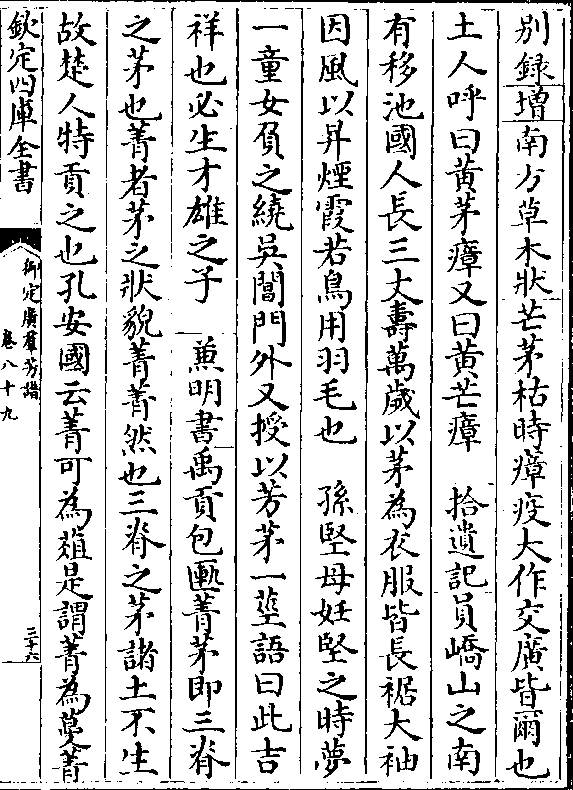 別録増南方草木狀芒茅枯時瘴疫大作交廣皆爾也
土人呼曰黄茅瘴又曰黄芒瘴　拾遺記員嶠山之南
有移池國人長三丈壽萬歲以茅為衣服皆長裾大袖
因風以昇煙霞若鳥用羽毛也　孫堅母妊堅之時夢
一童女負之繞吳閶門外又授以芳茅一莖語曰此吉
祥也必生才雄之子　兼明書禹貢包匭菁茅即三脊
之茅也菁者茅之狀貌菁菁然也三脊之茅諸土不生
故楚人特貢之也孔安國云菁可為葅是謂菁為蔓菁
欽定四庫全書
御定廣羣芳譜
卷八十九
三十六